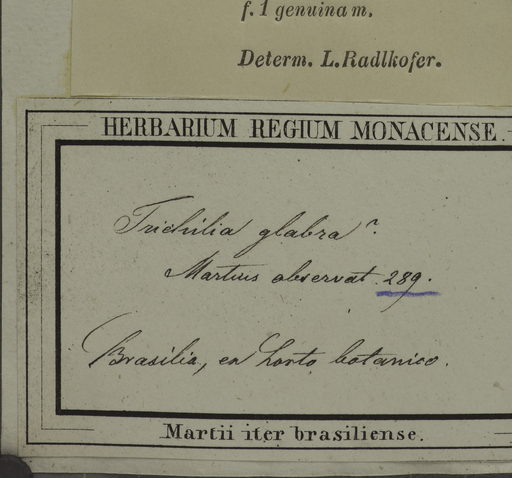 f. 1 genuina m.
Determ. L. Radlkofer.
HERBARIUM REGIUM MONACENSE.
Trichilia glabra?
Martius observat. 289.
Brasilia, ex horto botanico.
Martii iter brasiliense.